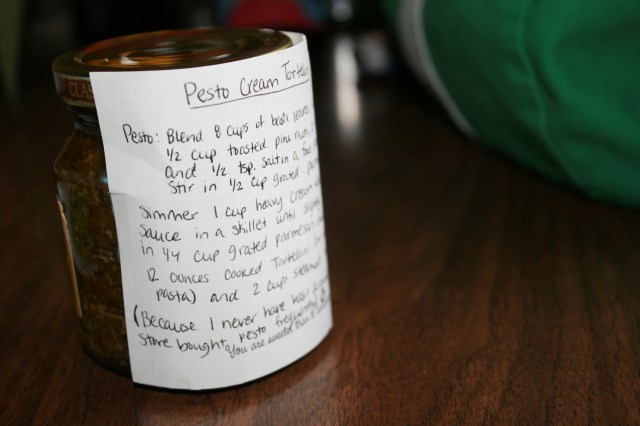 CLAS
Pesto Cream Tortelli
Pesto: Blend 8 cups of basil leaves
1/2 cup toasted pine nuts,
and 1/2 tsp. salt in a
Stir in 1/2 cup grated
Simmer 1 cup heavy cream
sauce in a skillet until
in 1/4 cup grated parmesan
12 ounces cooked Tortellini
pasta) and 2 cups steamed
(Because I never have basil
store bought pesto frequently
You are sweeter than